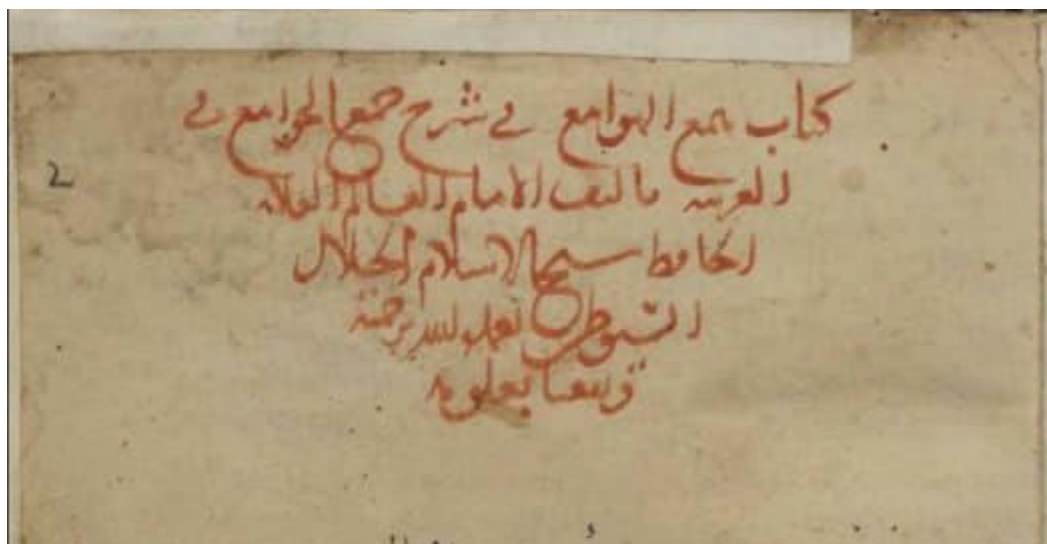 كتاب همع الهوامع في شرح جمع الجوامع في
العربيه تاليف الامام العالم العلامه
الحافظ شيخ الاسلام الجلال
السيوطي تغمده الله برحمته
ونفعنا بعلومه
2